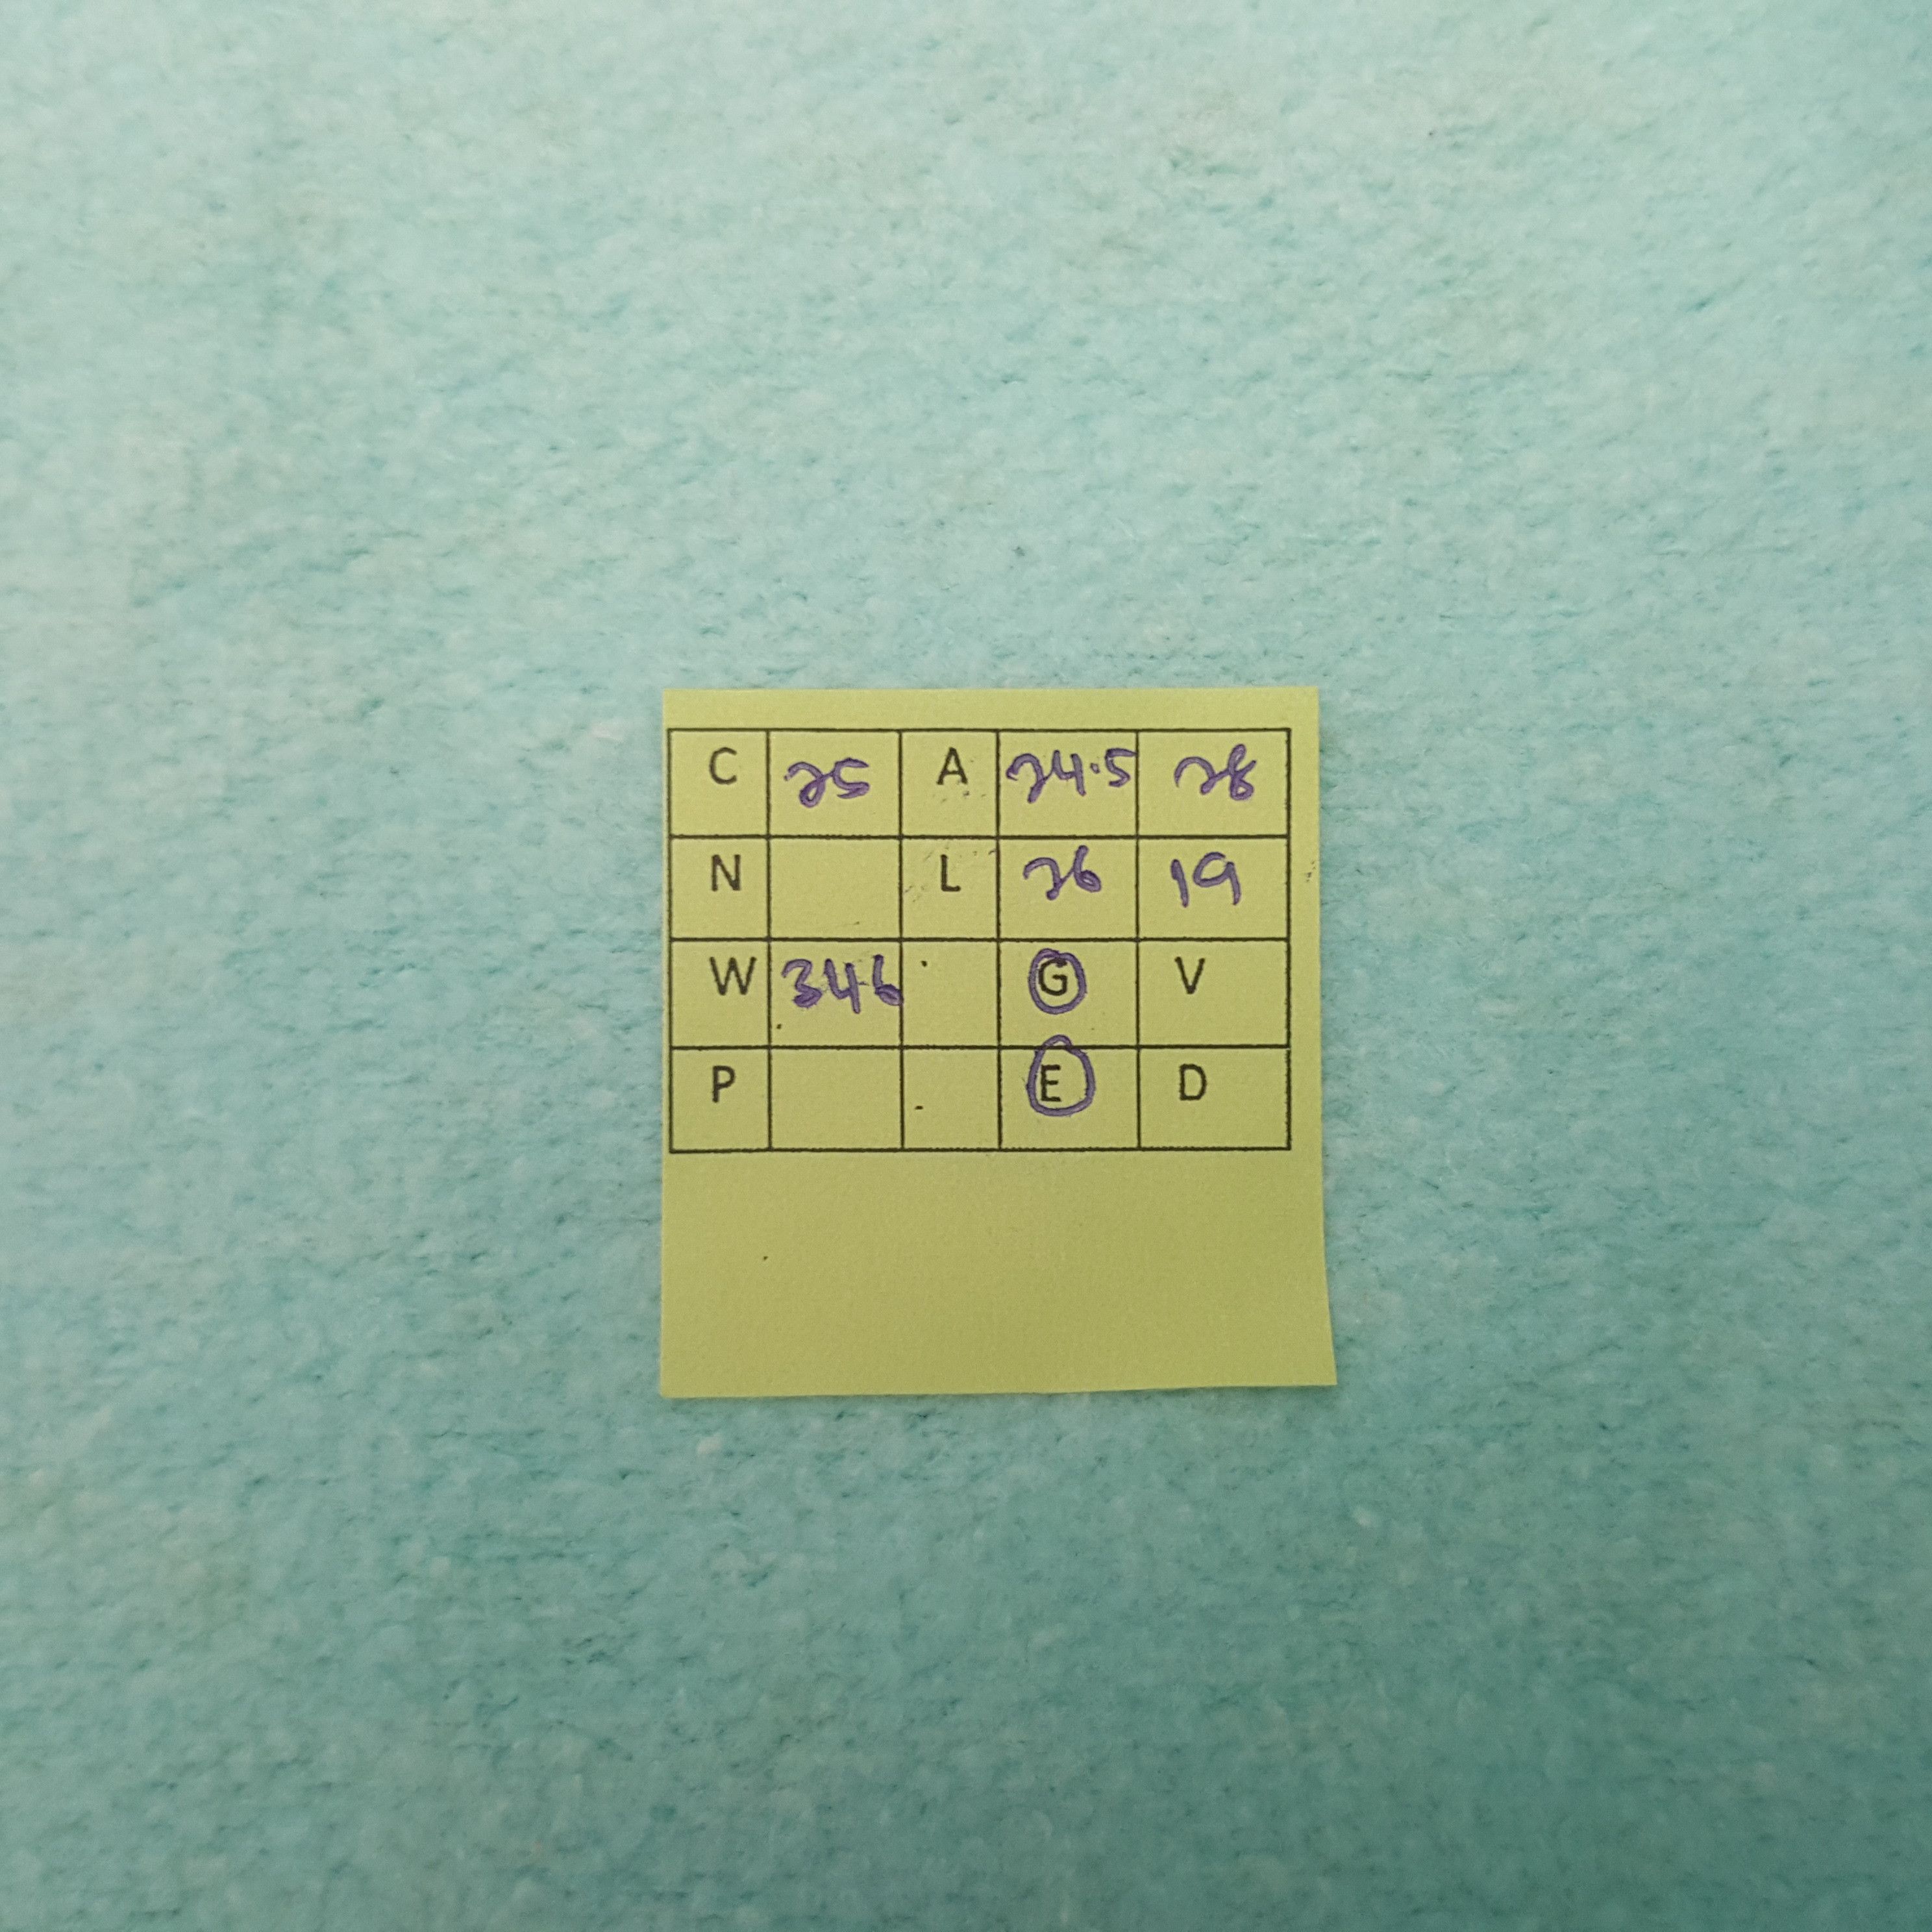 C 25 A 24.5 28
N L 26 19
W 346 G V
P E D